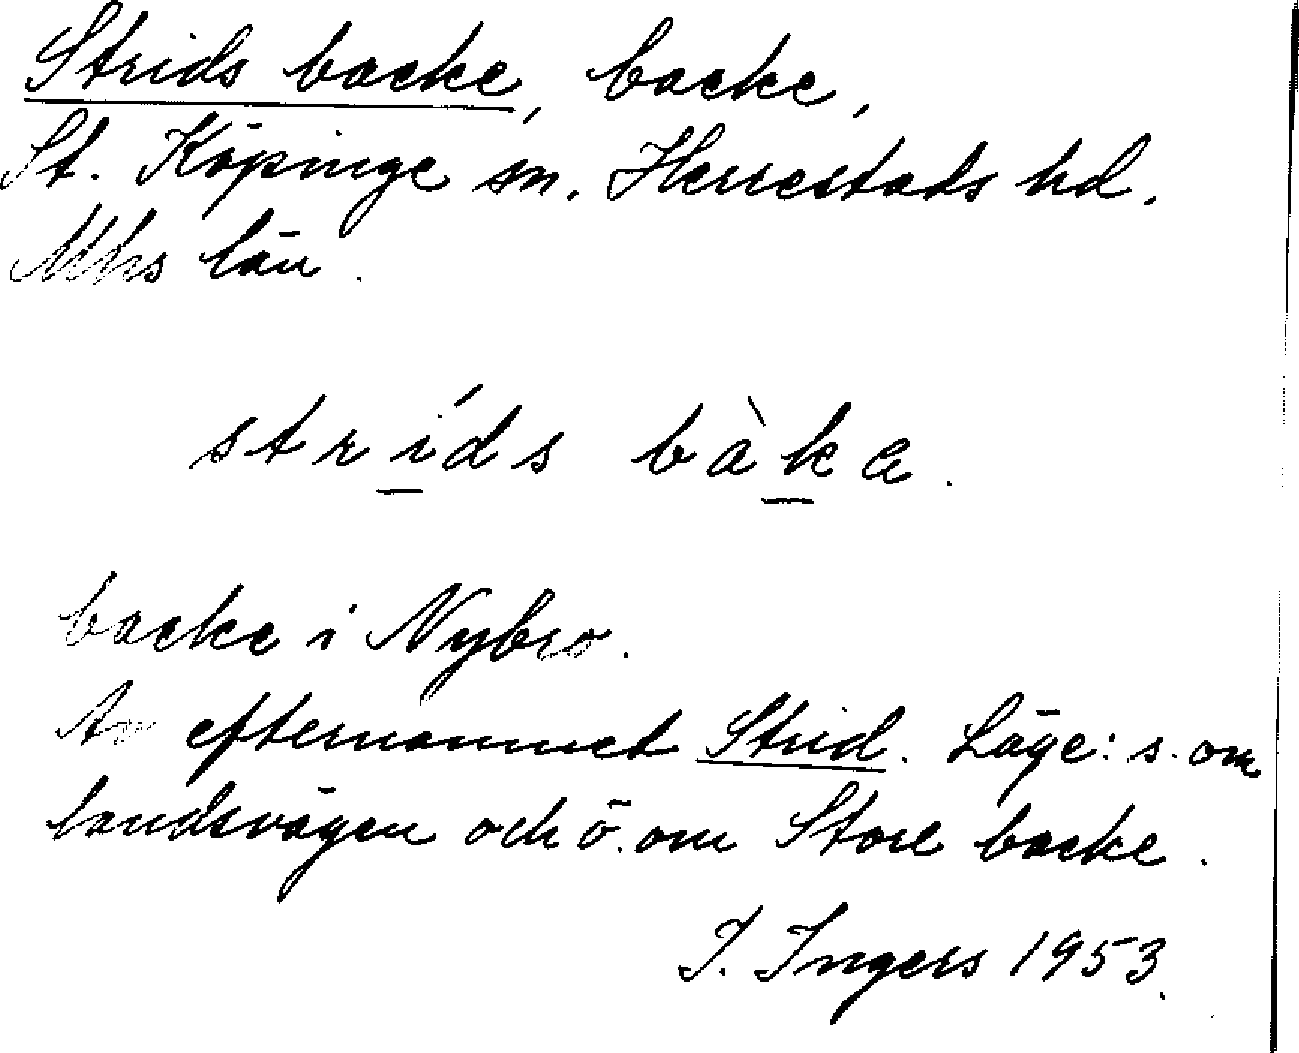 Strids backe, backe,
St. Köpinge sn. Herrestads hd.
Mhs län.
strids bàka.
backe i Nybro.
Av efternamnet Strid. Läge: s. om
landsvägen och ö. om Store backe.
I. Ingers 1953.